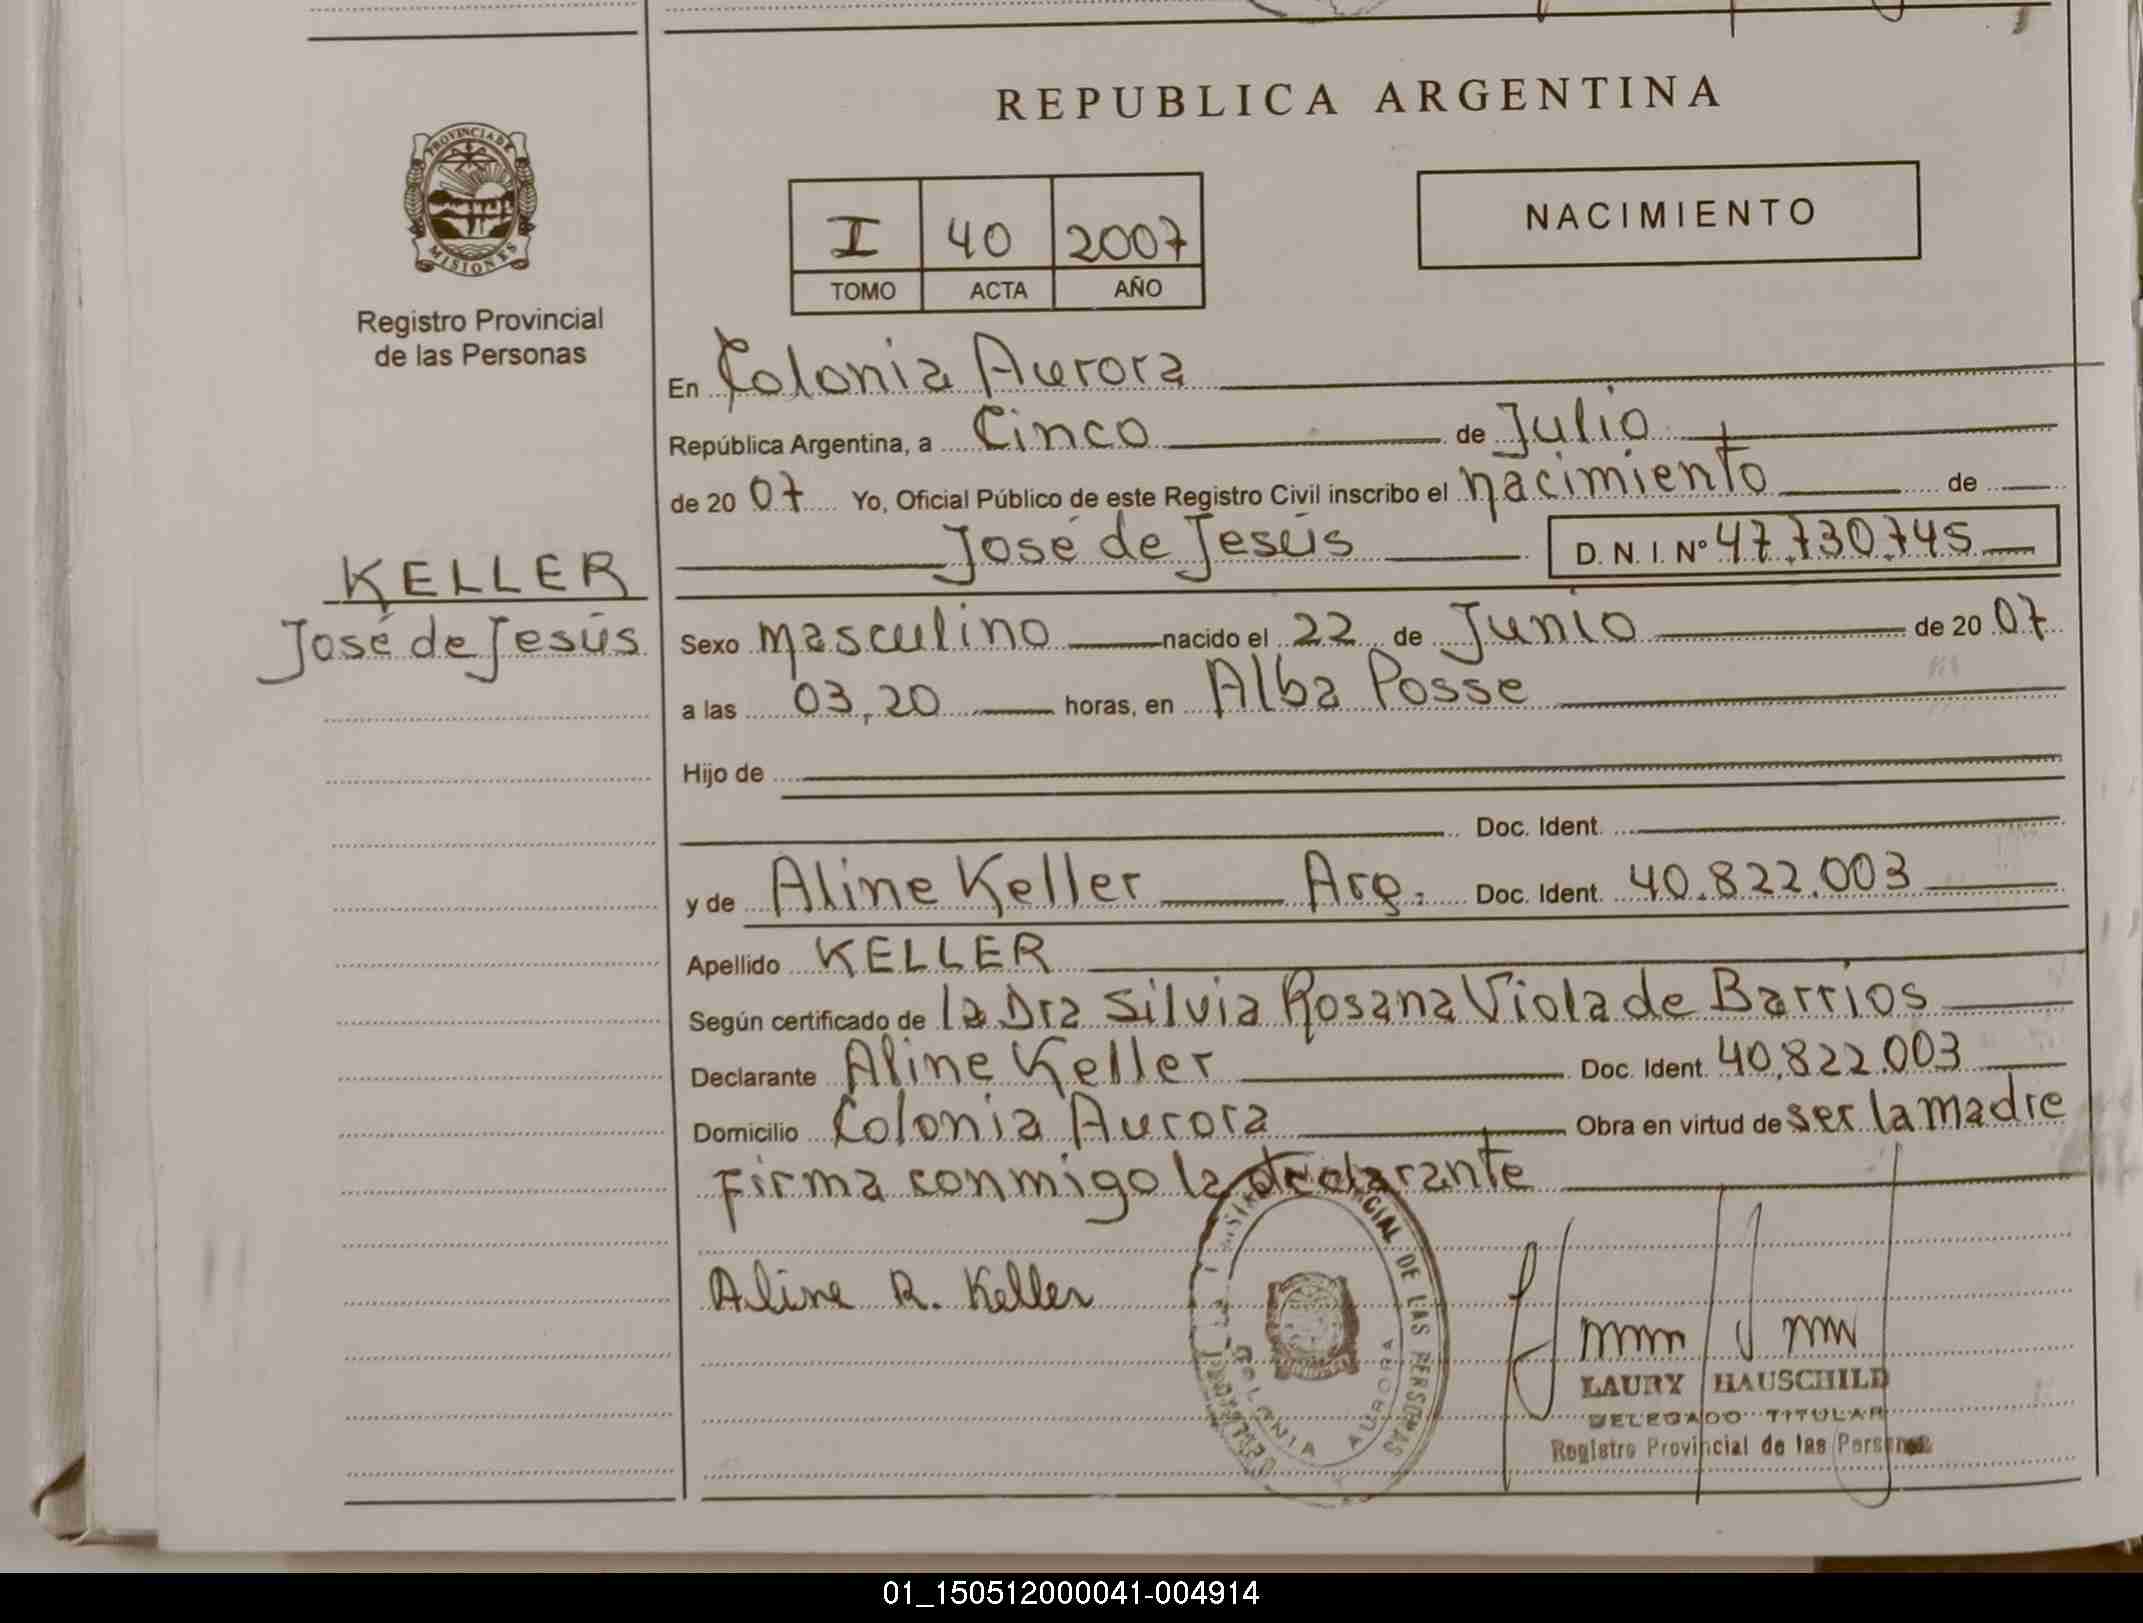 REPUBLICA ARGENTINA
PROVINCIA DE
MISIONES
Registro Provincial
de las Personas
I 40 2007
TOMO ACTA AÑO
NACIMIENTO
En Colonia Aurora
República Argentina, a Cinco de Julio
de 20 07 Yo, Oficial Público de este Registro Civil inscribo el nacimiento de
José de Jesús D. N. I. Nº 47.730.745
KELLER
José de Jesús
Sexo masculino nacido el 22 de Junio de 20 07
a las 03,20 horas, en Alba Posse
Hijo de
Doc. Ident.
y de Aline Keller Arg. Doc. Ident. 40.822.003
Apellido KELLER
Según certificado de la Dra Silvia Rosana Viola de Barrios
Declarante Aline Keller Doc. Ident. 40.822.003
Domicilio Colonia Aurora Obra en virtud de ser la madre
Firma conmigo la declarante
Aline R. Keller
DE LAS PERSONAS
COLONIA AURORA
LAURY HAUSCHILD
DELEGADO TITULAR
Registro Provincial de las Personas
01_150512000041-004914